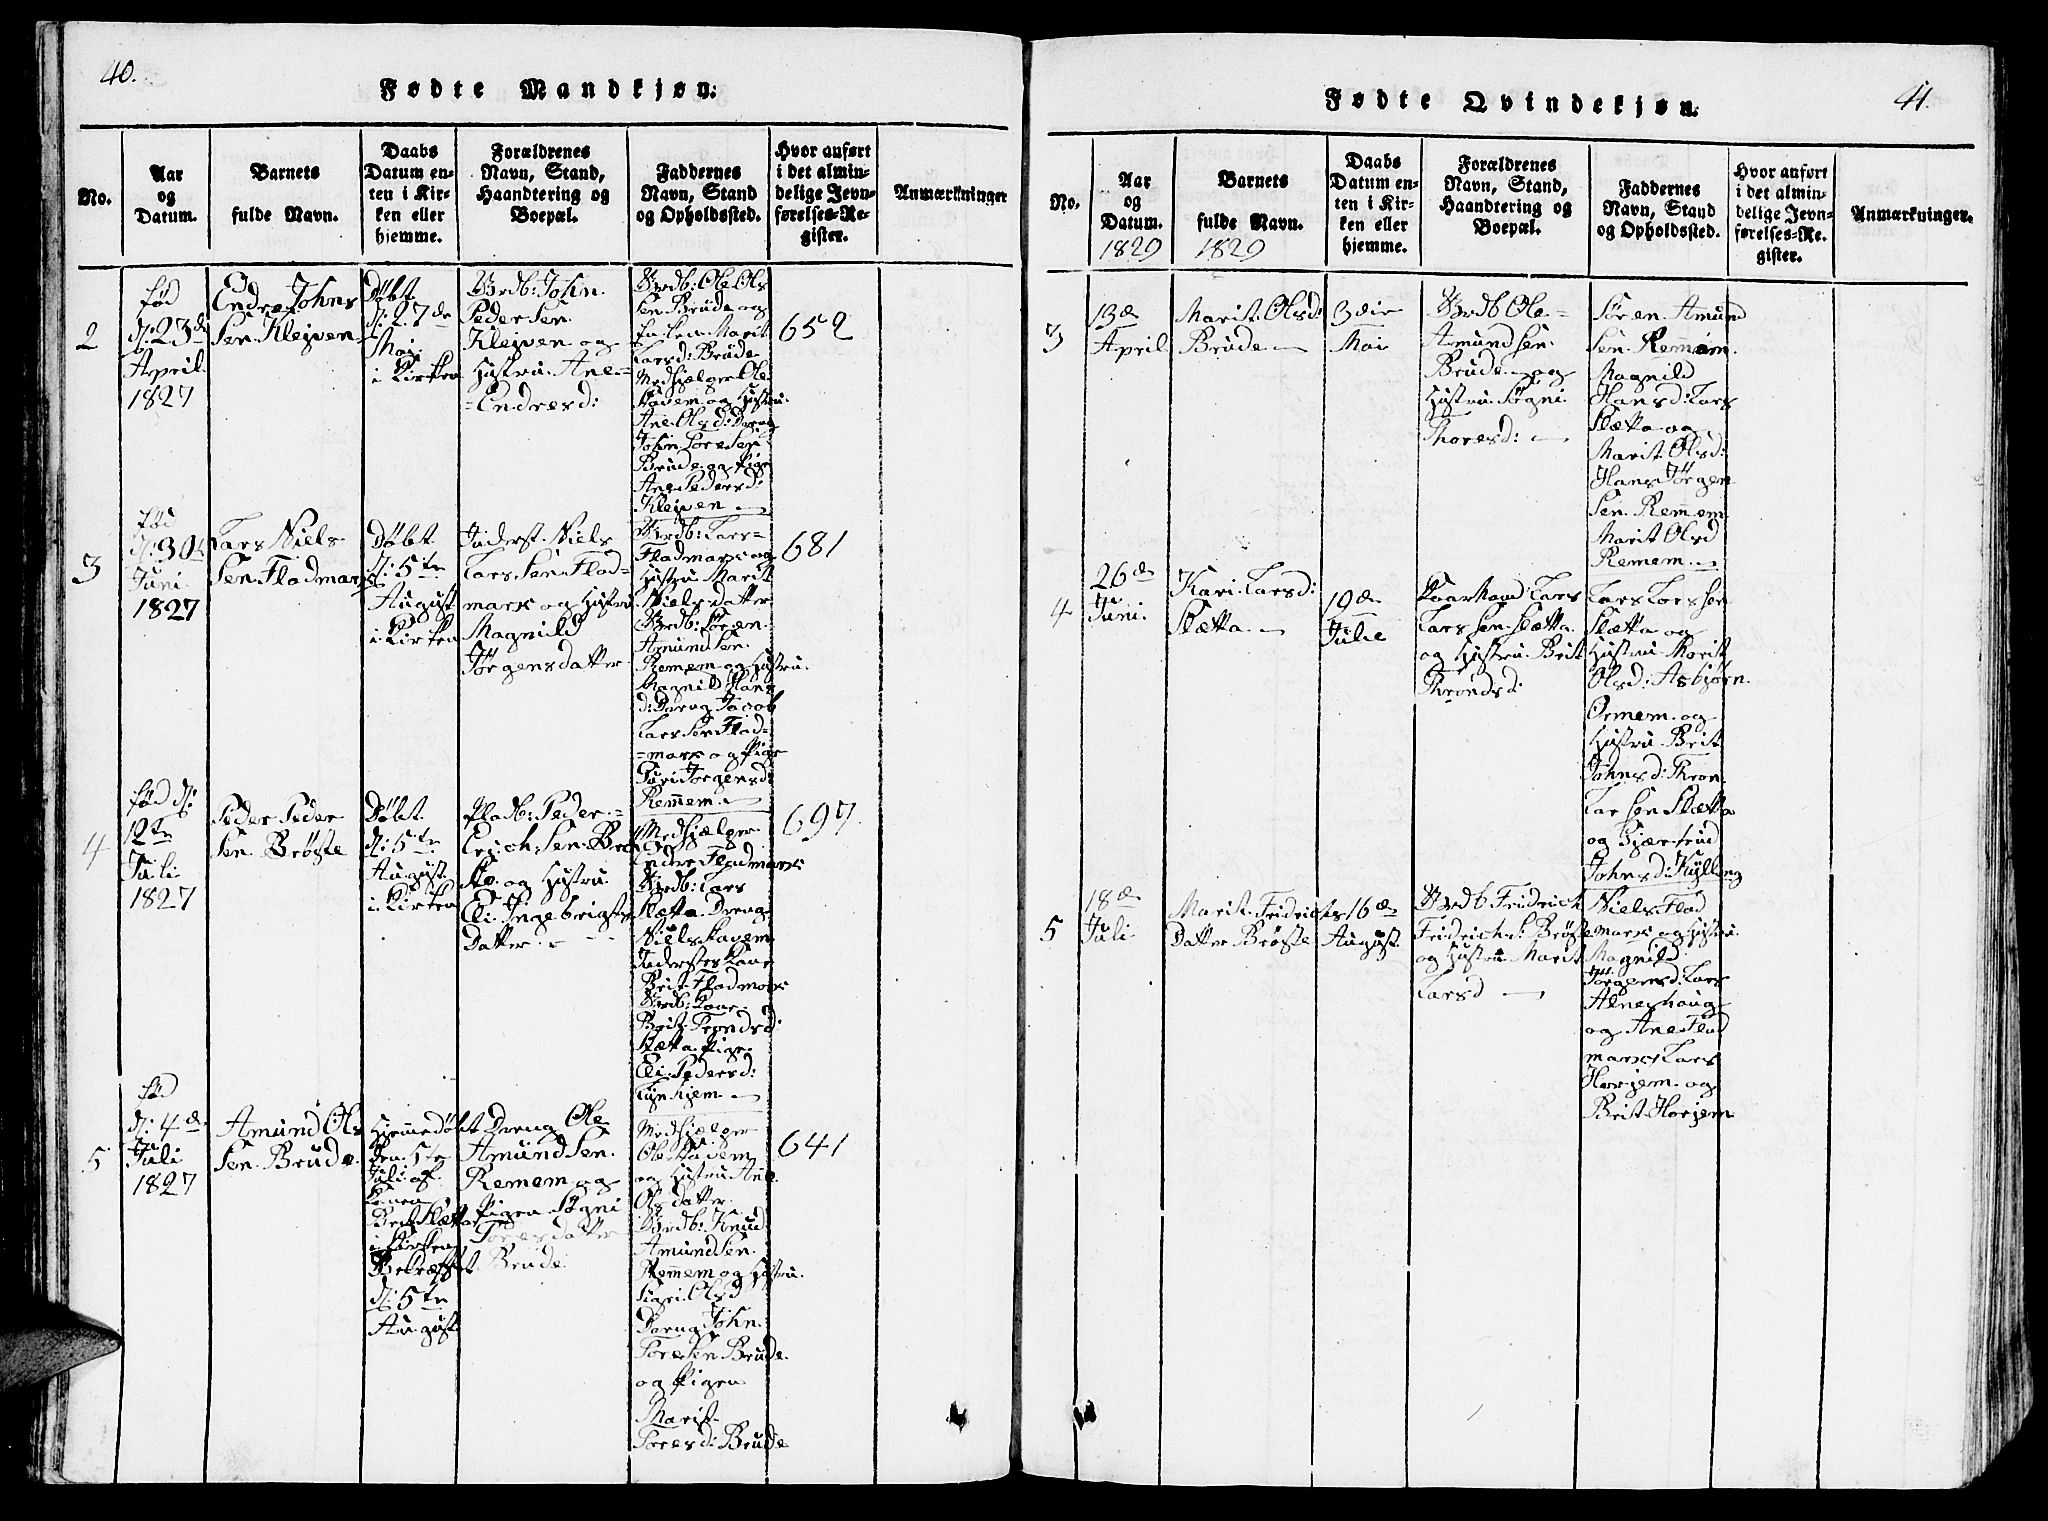 40.
Fødte Mandkjøn.
No.
Aar
og
Datum.
Barnets
fulde Navn.
Daabs
Datum en-
ten i Kir-
ken eller
hjemme.
Forældrenes
Navn, Stand,
Haandtering og
Boepæl.
Faddernes
Navn, Stand
og Opholdssted.
Hvor anført
i det almin-
delige Jevn-
førelses-Re-
gister.
Anmærkninger
2
fød
d: 23de
April
1827
Endre Johns
Sen Klejven
Døbt
d: 27de
Maj
i Kirken
Grdb: John
Peder Sen
Klejven og
Hustru Ane
Endresd:
Grdb: Ole Ols
Sen Brude og
Marit
Larsd: Brude
Medhjælper Ole
Stavem og Hustru
Ane Olsd: Dreng
John Tore Sen
Brude og Pige
Ane Pedersd:
Klejven
652
3
fød
d: 30te
Juni
1827
Lars Niels
Sen Fladmark
Døbt
d: 5te
August
i Kirken
Inderst Niels
Lars Sen Flad-
mark og Hustru
Magnild
Jørgensdatter
Grdb: Lars
Fladmark og
Hustru Marit
Nielsdatter
Grdb: Søren
Amund Sen
Remem og Hustru
Magnild Hans
d: Dreng Jacob
Lars Sen Flad-
mark og Pige
Guri Jørgensd:
Remmem
681
4
fød d:
12te
Juli
1827
Peder Peder
Sen Brøste
Døbt
d: 5te
August
i Kirken
Pladb: Peder
Erich Sen Brø
ste og Hustru
Eli Ingebrigts
Datter
Medhjælper
Endre Fladmark
Grdb: Lars
Slætta Dreng
Niels Stavem
Inderstes Kone
Brit Fladmark
Grdb: Kone
Brit Trondsd:
Slætta Pige
Eli Pedersd:
Lynhjem
697
5
fød
d: 4de
Juli
1827
Amund Ols
Sen Brude
Hjemmedøbt
den 5te
Juli af
Konen
Brit Slætta
i Kirken
Bekræftet
d: 5te
August
Dreng Ole
Amund Sen
Remem og
Pigen Søgni
Toresdatter
Brude
Medhjælper
Ole Stavem
og Hustru Ane
Ols datter
Grdb: Knud
Amund Sen
Remmem og Hustru
Sigri Olsd
Dreng John
Tore Sen Brude
og Pigen
Marit
Toresd: Brude
641
41.
Fødte Qvindekjøn.
No.
Aar
og
Datum.
1829
Barnets
fulde Navn.
1829
Daabs
Datum en-
ten i Kir-
ken eller
hjemme.
Forældrenes
Navn, Stand,
Haandtering og
Boepæl.
Faddernes
Navn, Stand
og Opholdssted.
Hvor anført
i det almin-
delige Jevn-
førelses-Re-
gister.
Anmærkninger.
3
13de
April
Marit Olsd:
Brude
3die
Mai
Grdb Ole
Amundsen
Brude og
Hustru Søgni
Thoresd:
Søren Amund
Sen Remmem
Magnild
Hansd: Lars
Slætta og
Marit Olsd:
Hans Jörgen
Sen Remem
Marit Olsd
Remem
4
26de
Juni
Kari Larsd:
Slætta
19de
Julie
Gaarmand Lars
Larssen Slætta
og Hustru Brit
Throndsd:
Lars Larssen
Slætta og
Hustru Marit
Olsd: Asbjørn
Ormem og
Hustru Brit
Johnsd: Thron
Larsen Slætta
og Gjærtrud
Johnsd: Kylling
5
18de
Juli
Marit Fridrichs
Datter Brøste
16de
August
Grdb Fridrich
Fridrich S: Brøste
og Hustru Marit
Larsd
Niels Flad
mark og Hustru
Magnild
Jørgensd: Lars
Alneshaug
og Ane Flad
mark Lars
Horjem og
Brit Horjem